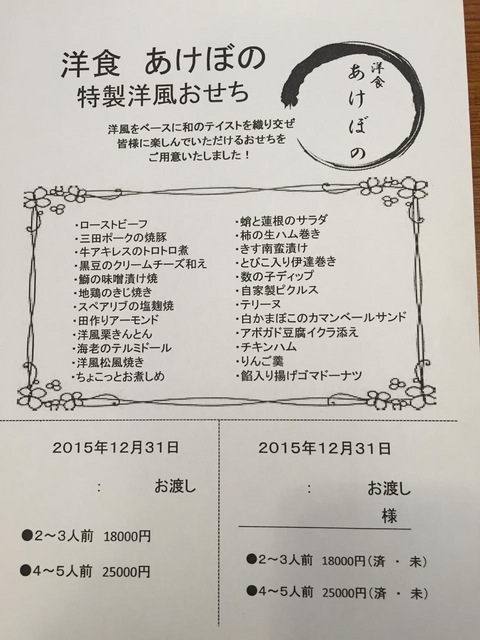 洋食 あけぼの
特製洋風おせち
洋食
あけぼの
洋風をベースに和のテイストを織り交ぜ
皆様に楽しんでいただけるおせちを
ご用意いたしました！
・ローストビーフ
・三田ポークの焼豚
・牛アキレスのトロトロ煮
・黒豆のクリームチーズ和え
・鰤の味噌漬け焼
・地鶏のきじ焼き
・スペアリブの塩麹焼
・田作りアーモンド
・洋風栗きんとん
・海老のテルミドール
・洋風松風焼き
・ちょこっとお煮しめ
・蛸と蓮根のサラダ
・柿の生ハム巻き
・きす南蛮漬け
・とびこ入り伊達巻き
・数の子ディップ
・自家製ピクルス
・テリーヌ
・白かまぼこのカマンベールサンド
・アボガド豆腐イクラ添え
・チキンハム
・りんご羹
・餡入り揚げゴマドーナツ
2015年12月31日
： お渡し
●2～3人前 18000円
●4～5人前 25000円
2015年12月31日
： お渡し
様
●2～3人前 18000円（済 ・ 未）
●4～5人前 25000円（済 ・ 未）